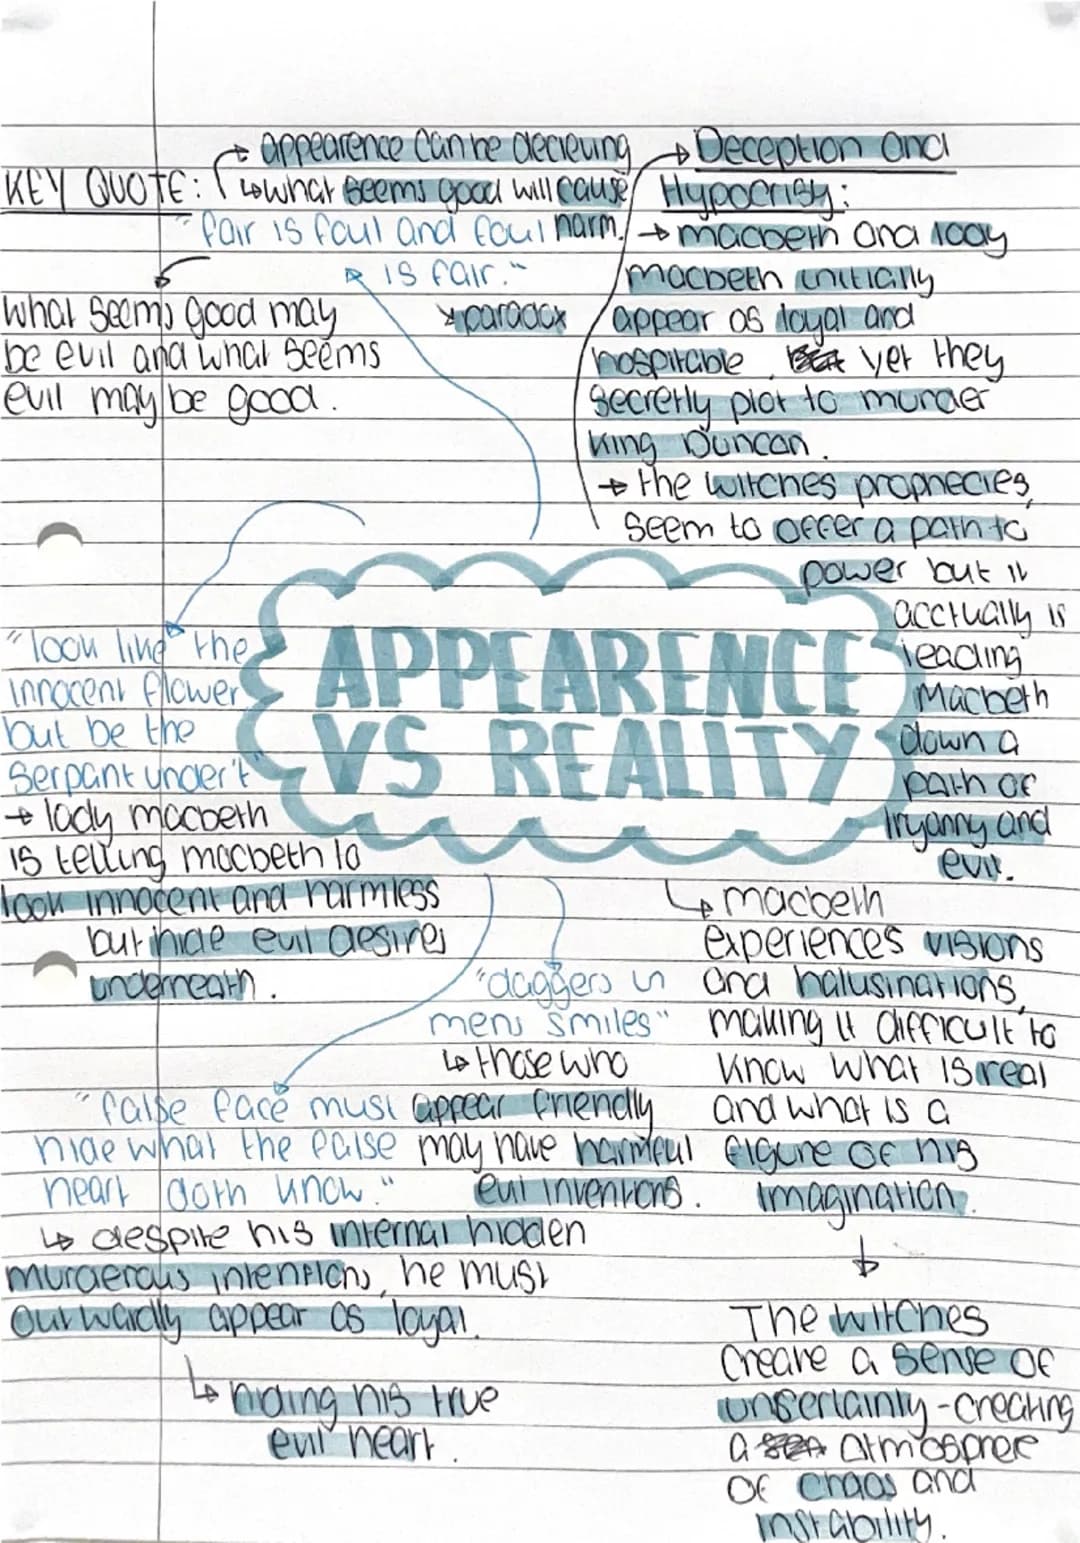 appearence can be decieving
KEY QUOTE:
what seems good will cause
harm.
"fair is foul and foul
is fair."
paradox
what seems good may
be evil and what seems
evil may be good.
Deception and
Hypocrisy:
macbeth and lady
macbeth initially
appear as loyal and
hospitable, yet they
secretly plot to murder
king Duncan.
the witches prophecies,
seem to offer a path to
power but it
acctually is
leading
Macbeth
down a
path of
tryanny and
evil.
"look like the
innocent flower
but be the
serpant under't"
lady macbeth
is telling macbeth to
look innocent and harmless
but hide evil desires
underneath.
APPEARENCE
VS REALITY
"daggers in
mens smiles"
those who
appear friendly
may have harmful
evil inventions.
"false face must
hide what the false
heart doth know."
despite his internal hidden
murderous intentions, he must
outwardly appear as loyal.
hiding his true
evil heart.
macbeth
experiences visions
and halusinations,
making it difficult to
know what is real
and what is a
figure of his
imagination.
The witches
creare a sense of
unsertainty - creating
a atmosphere
of chaos and
instability.